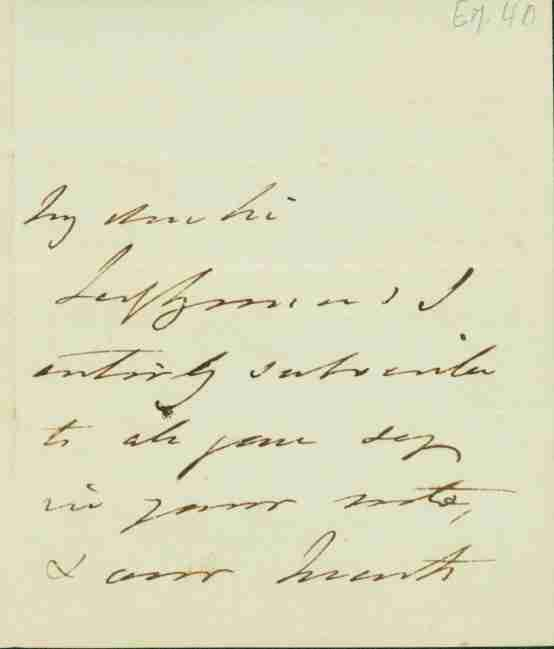 Ey. 40
My dear Sir
I
entirely subscribe
to all you say
in your note,
& am much